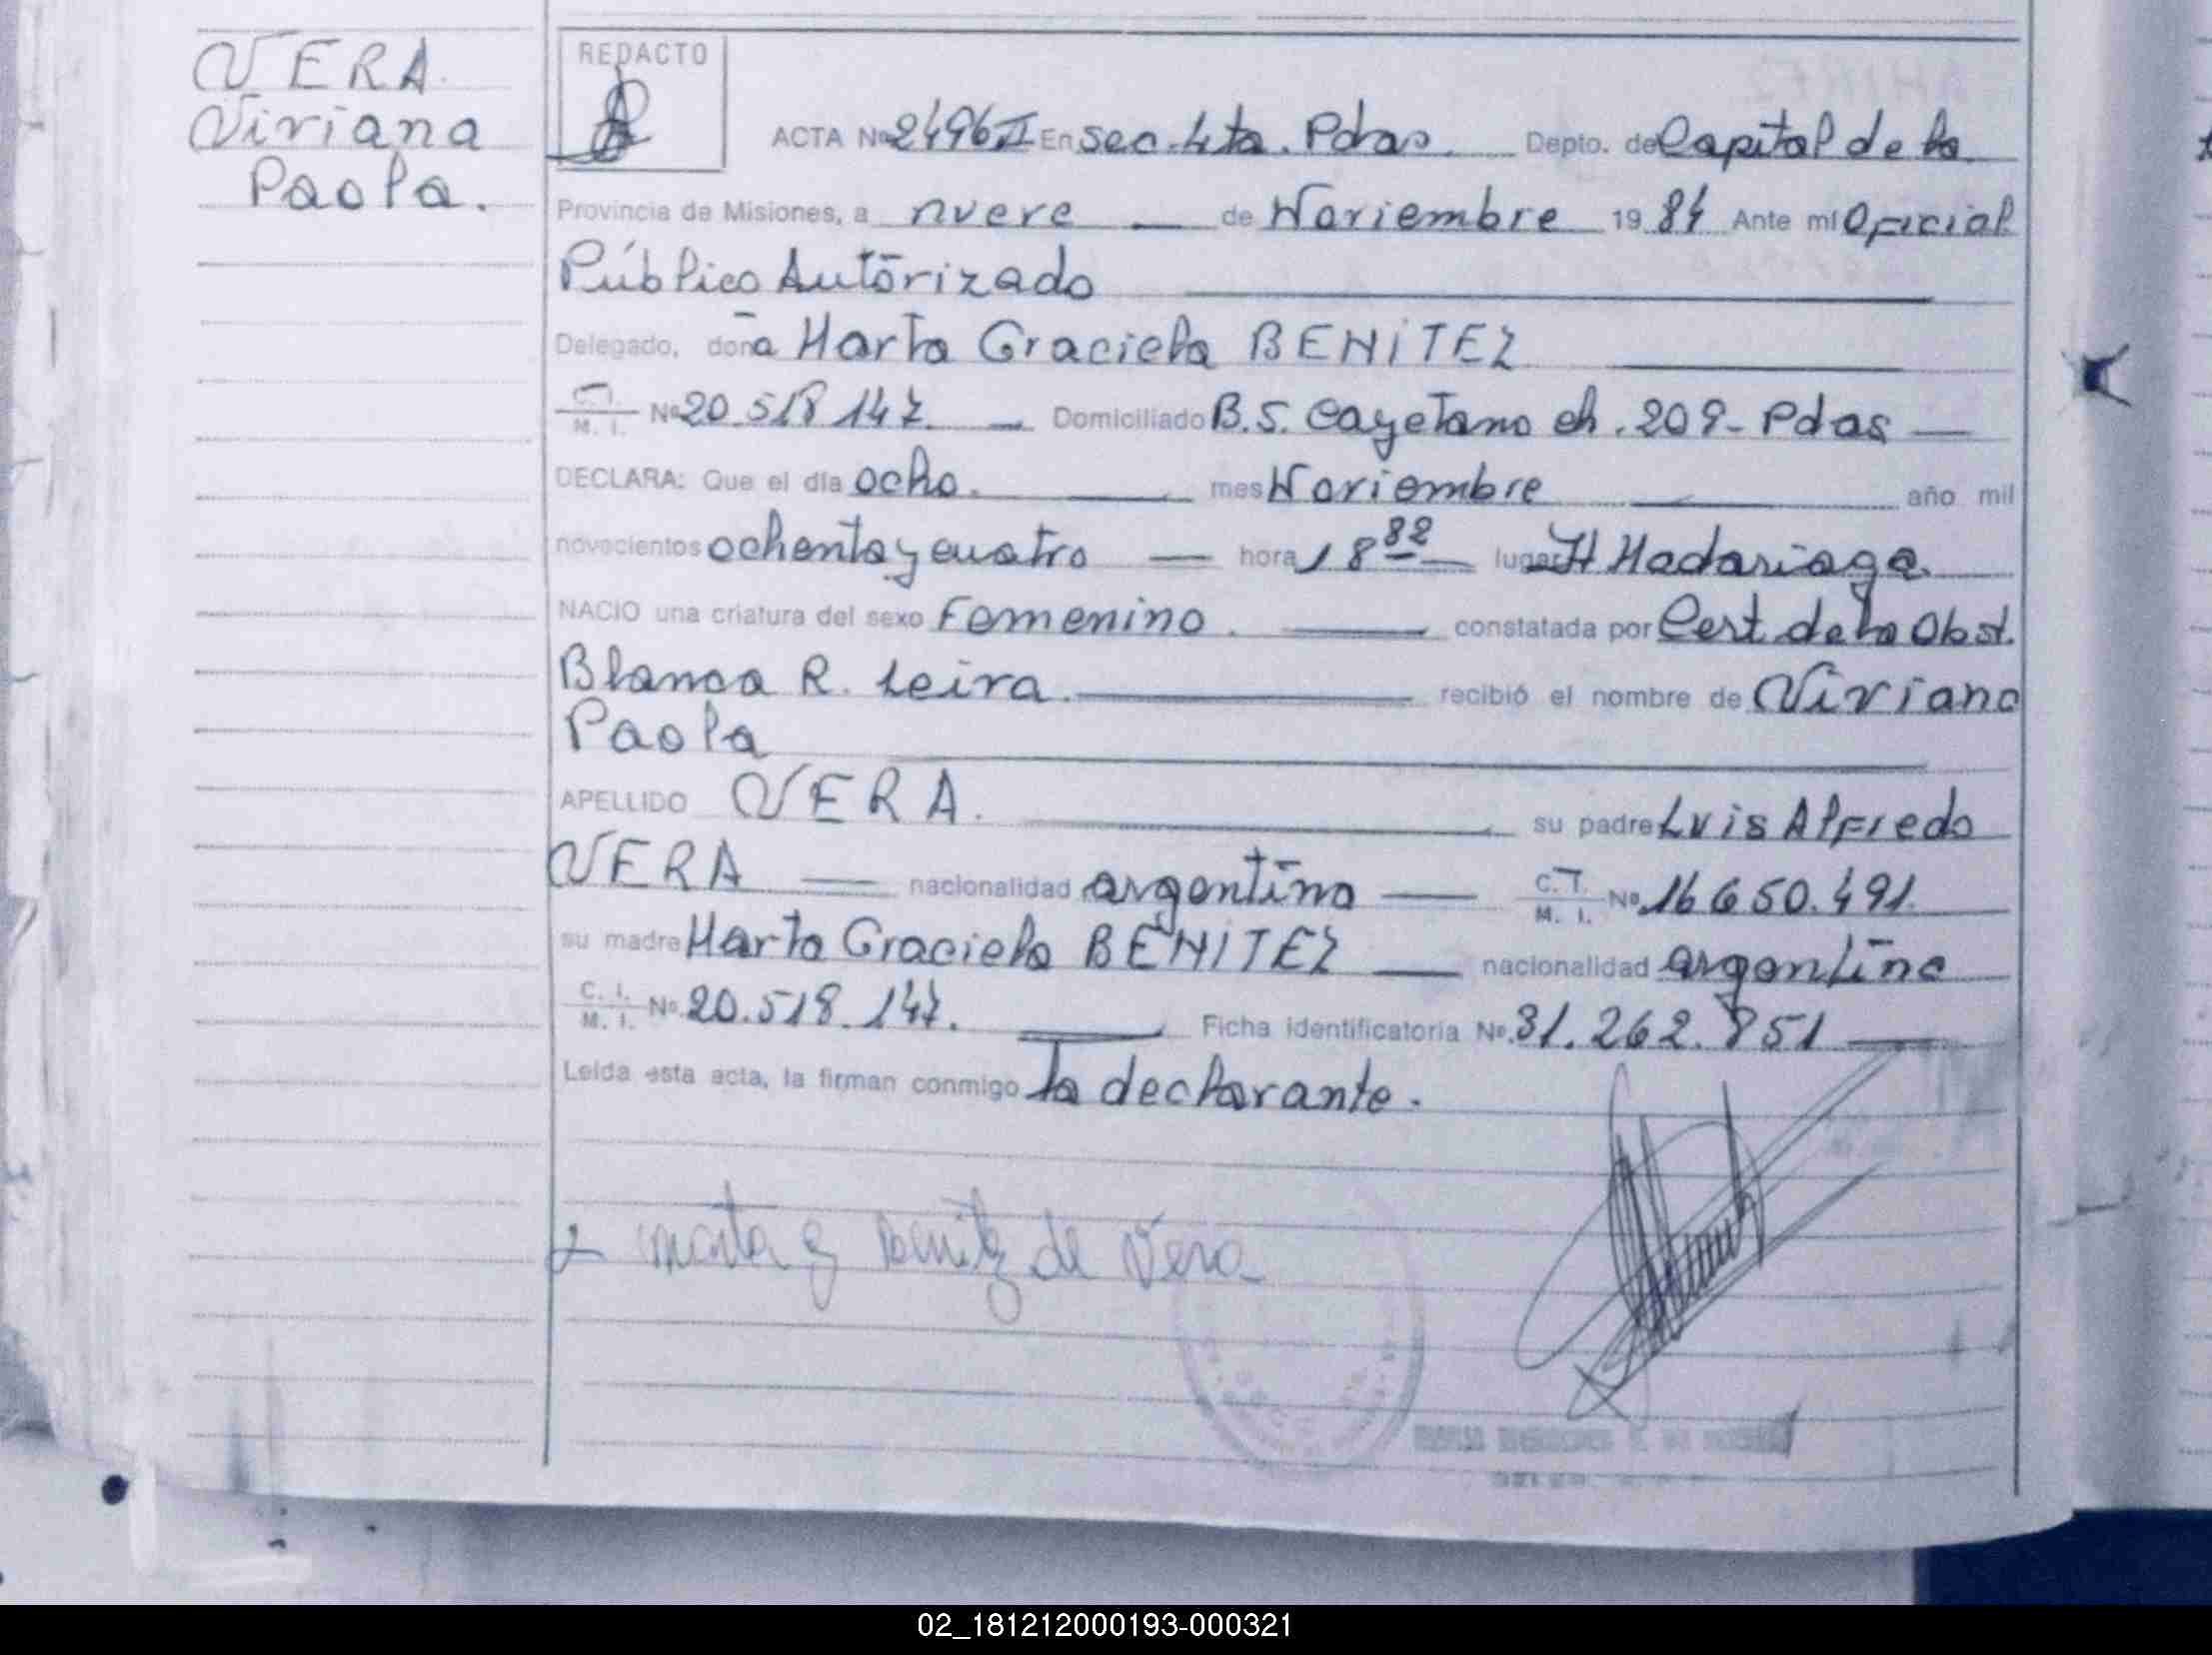 VERA
Viviana
Paola.
REDACTO
ACTA Nº 2496 II En sec. 4ta. Pdas. Depto. de Capital de la
Provincia de Misiones, a nueve de Noviembre 1984 Ante mí Oficial
Público Autorizado
Delegado, doña Marta Graciela BENITEZ
C. I. M. I. Nº 20.518.147 Domiciliado B. S. Cayetano ch. 209 - Pdas
DECLARA: Que el día ocho. mes Noviembre año mil
novecientos ochenta y cuatro hora 18 lugar H Madariaga
NACIO una criatura del sexo Femenino. constatada por Cert. de la Obst.
Blanca R. Leiva. recibió el nombre de Viviana
Paola
APELLIDO VERA. su padre Luis Alfredo
VERA nacionalidad argentino C. I. M. I. Nº 16.650.491.
su madre Marta Graciela BENITEZ nacionalidad argentina
C. I. M. I. Nº 20.518.147. Ficha identificatoria Nº 31.262.851
Leída esta acta, la firman conmigo la declarante.
Marta G Benitez de Vera
02_181212000193-000321